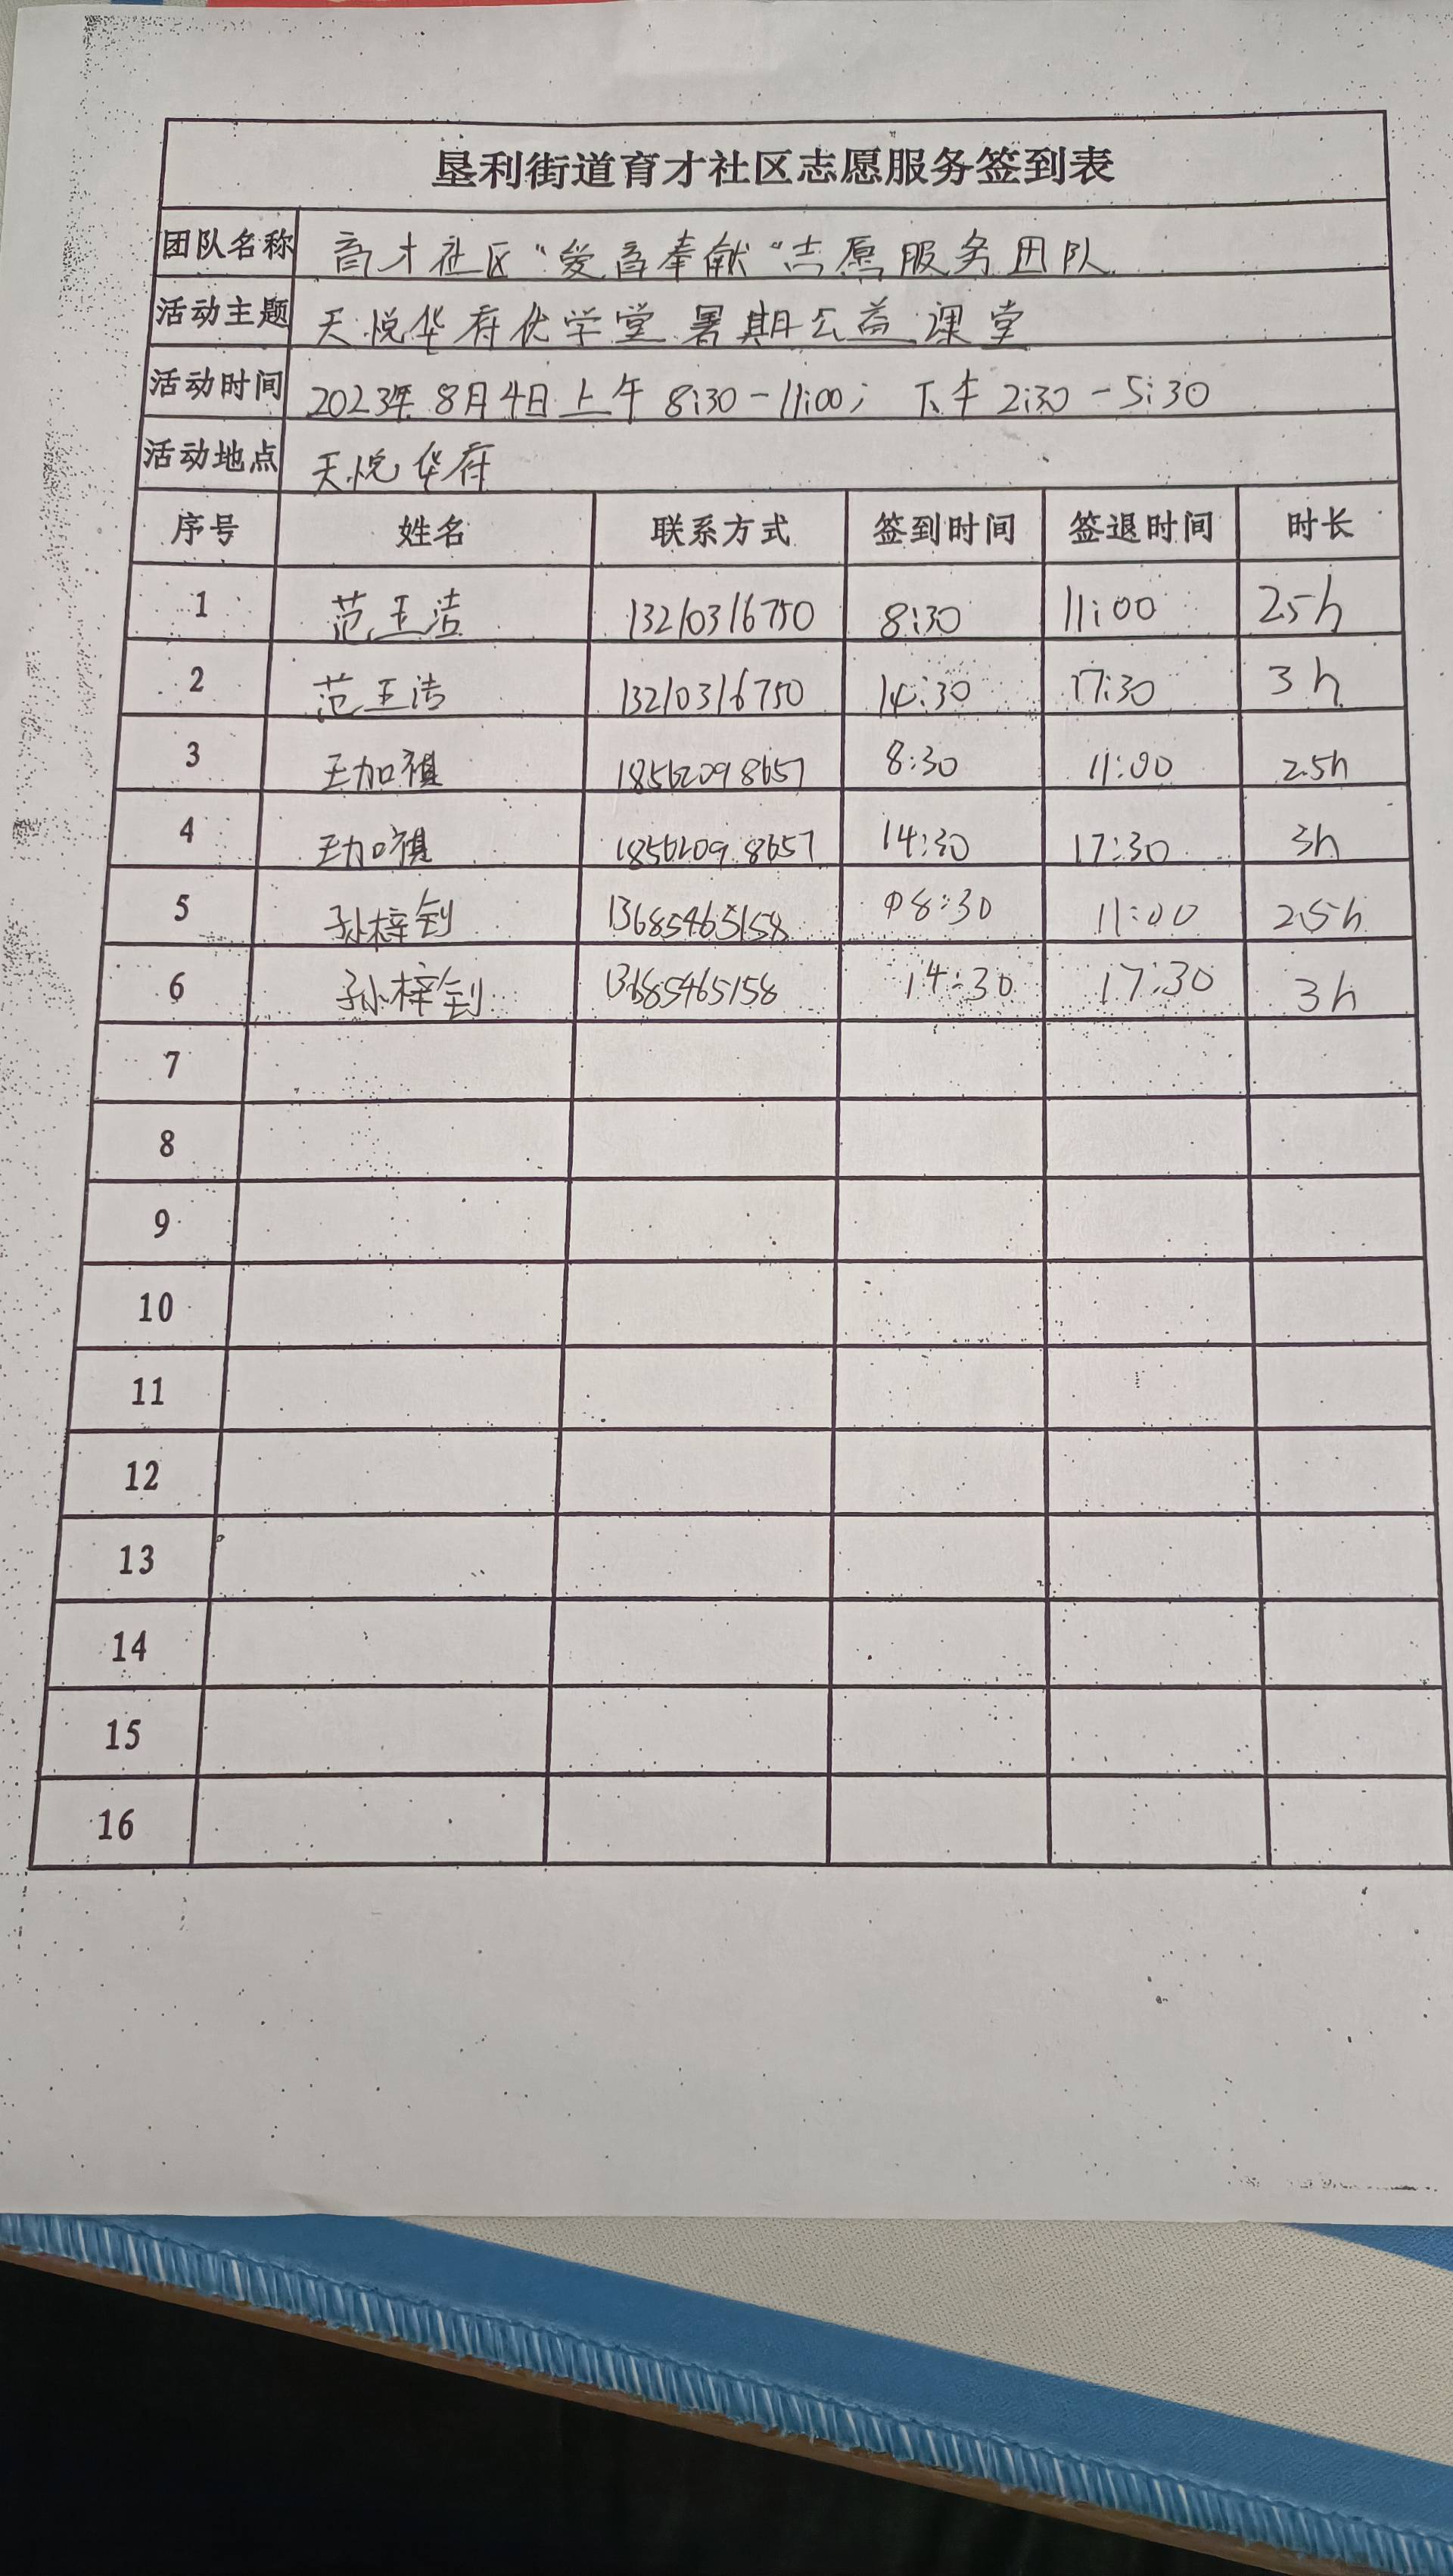 垦利街道育才社区志愿服务签到表
团队名称 育才社区“爱育奉献”志愿服务团队
活动主题 天悦华府优学堂暑期公益课堂
活动时间 2023年8月4日上午8:30-11:00; 下午2:30-5:30
活动地点 天悦华府
序号 姓名 联系方式 签到时间 签退时间 时长
1 范玉洁 13210316750 8:30 11:00 2.5h
2 范玉洁 13210316750 14:30 17:30 3h
3 王加祺 18562098657 8:30 11:00 2.5h
4 王加祺 18562098657 14:30 17:30 3h
5 孙梓钊 13685465158 08:30 11:00 2.5h
6 孙梓钊 13685465158 14:30 17:30 3h
7
8
9
10
11
12
13
14
15
16